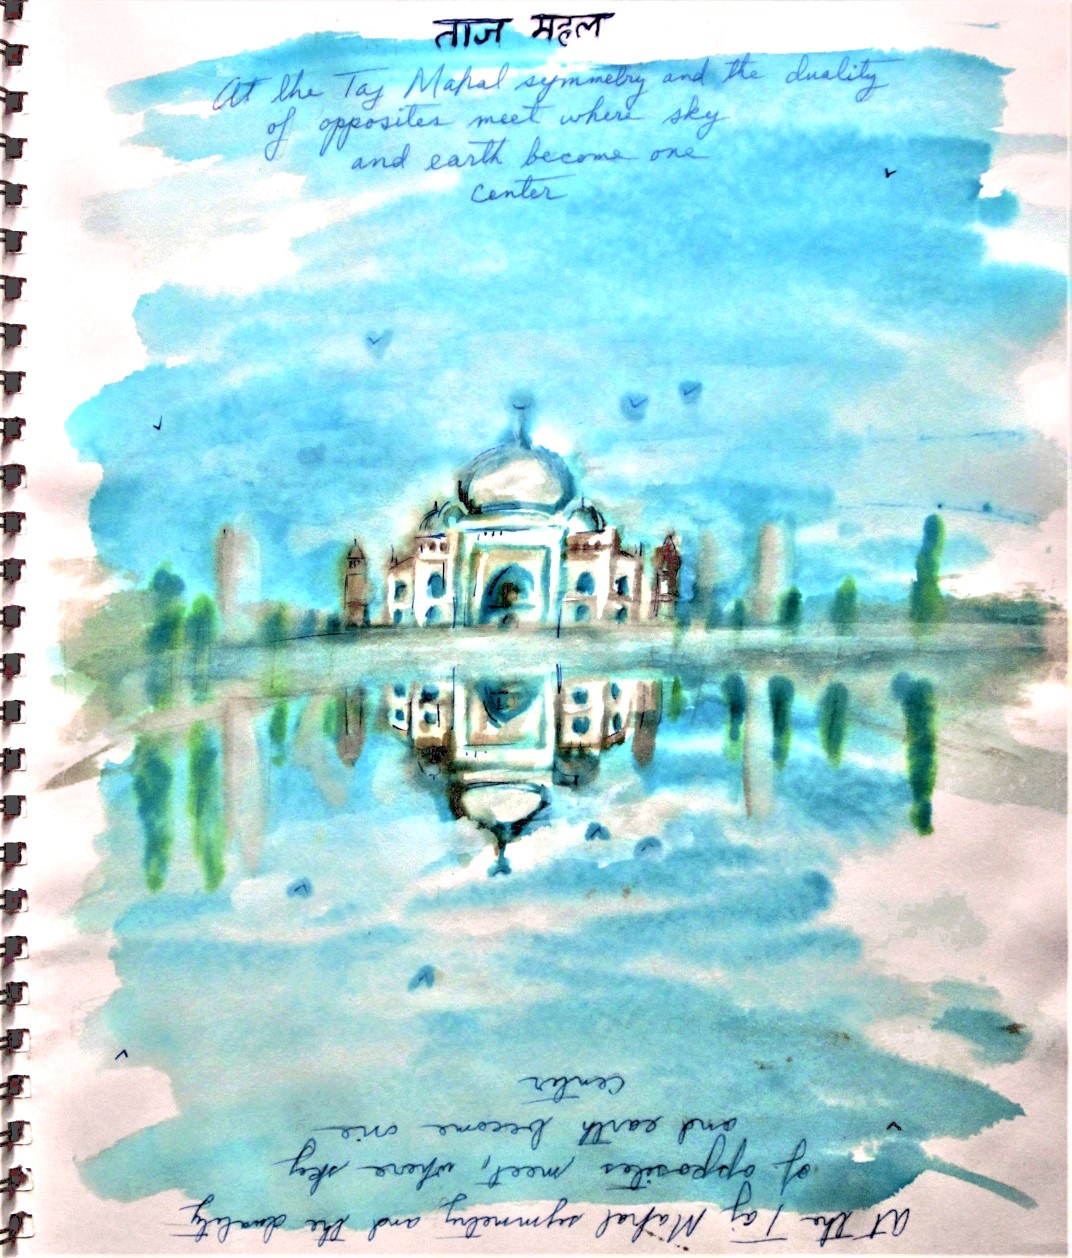 ताज महल
At the Taj Mahal symmetry and the duality
of opposites meet where sky
and earth become one
center
center
and earth become one
of opposites meet, where sky
At the Taj Mahal symmetry and the duality